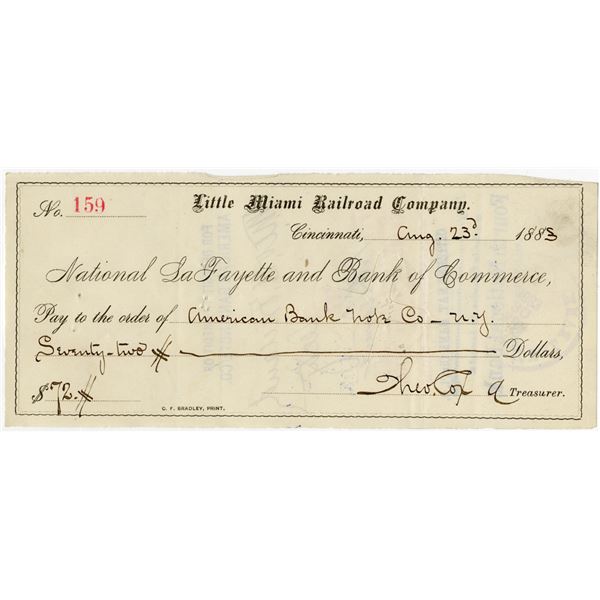 Little Miami Railroad Company.
No. 159
Cincinnati, Aug. 23d 1883
National LaFayette and Bank of Commerce,
Pay to the order of American Bank Note Co - N.Y.
Seventy-two Dollars,
$72.
Theo. Cox Treasurer.
C. F. BRADLEY, PRINT.